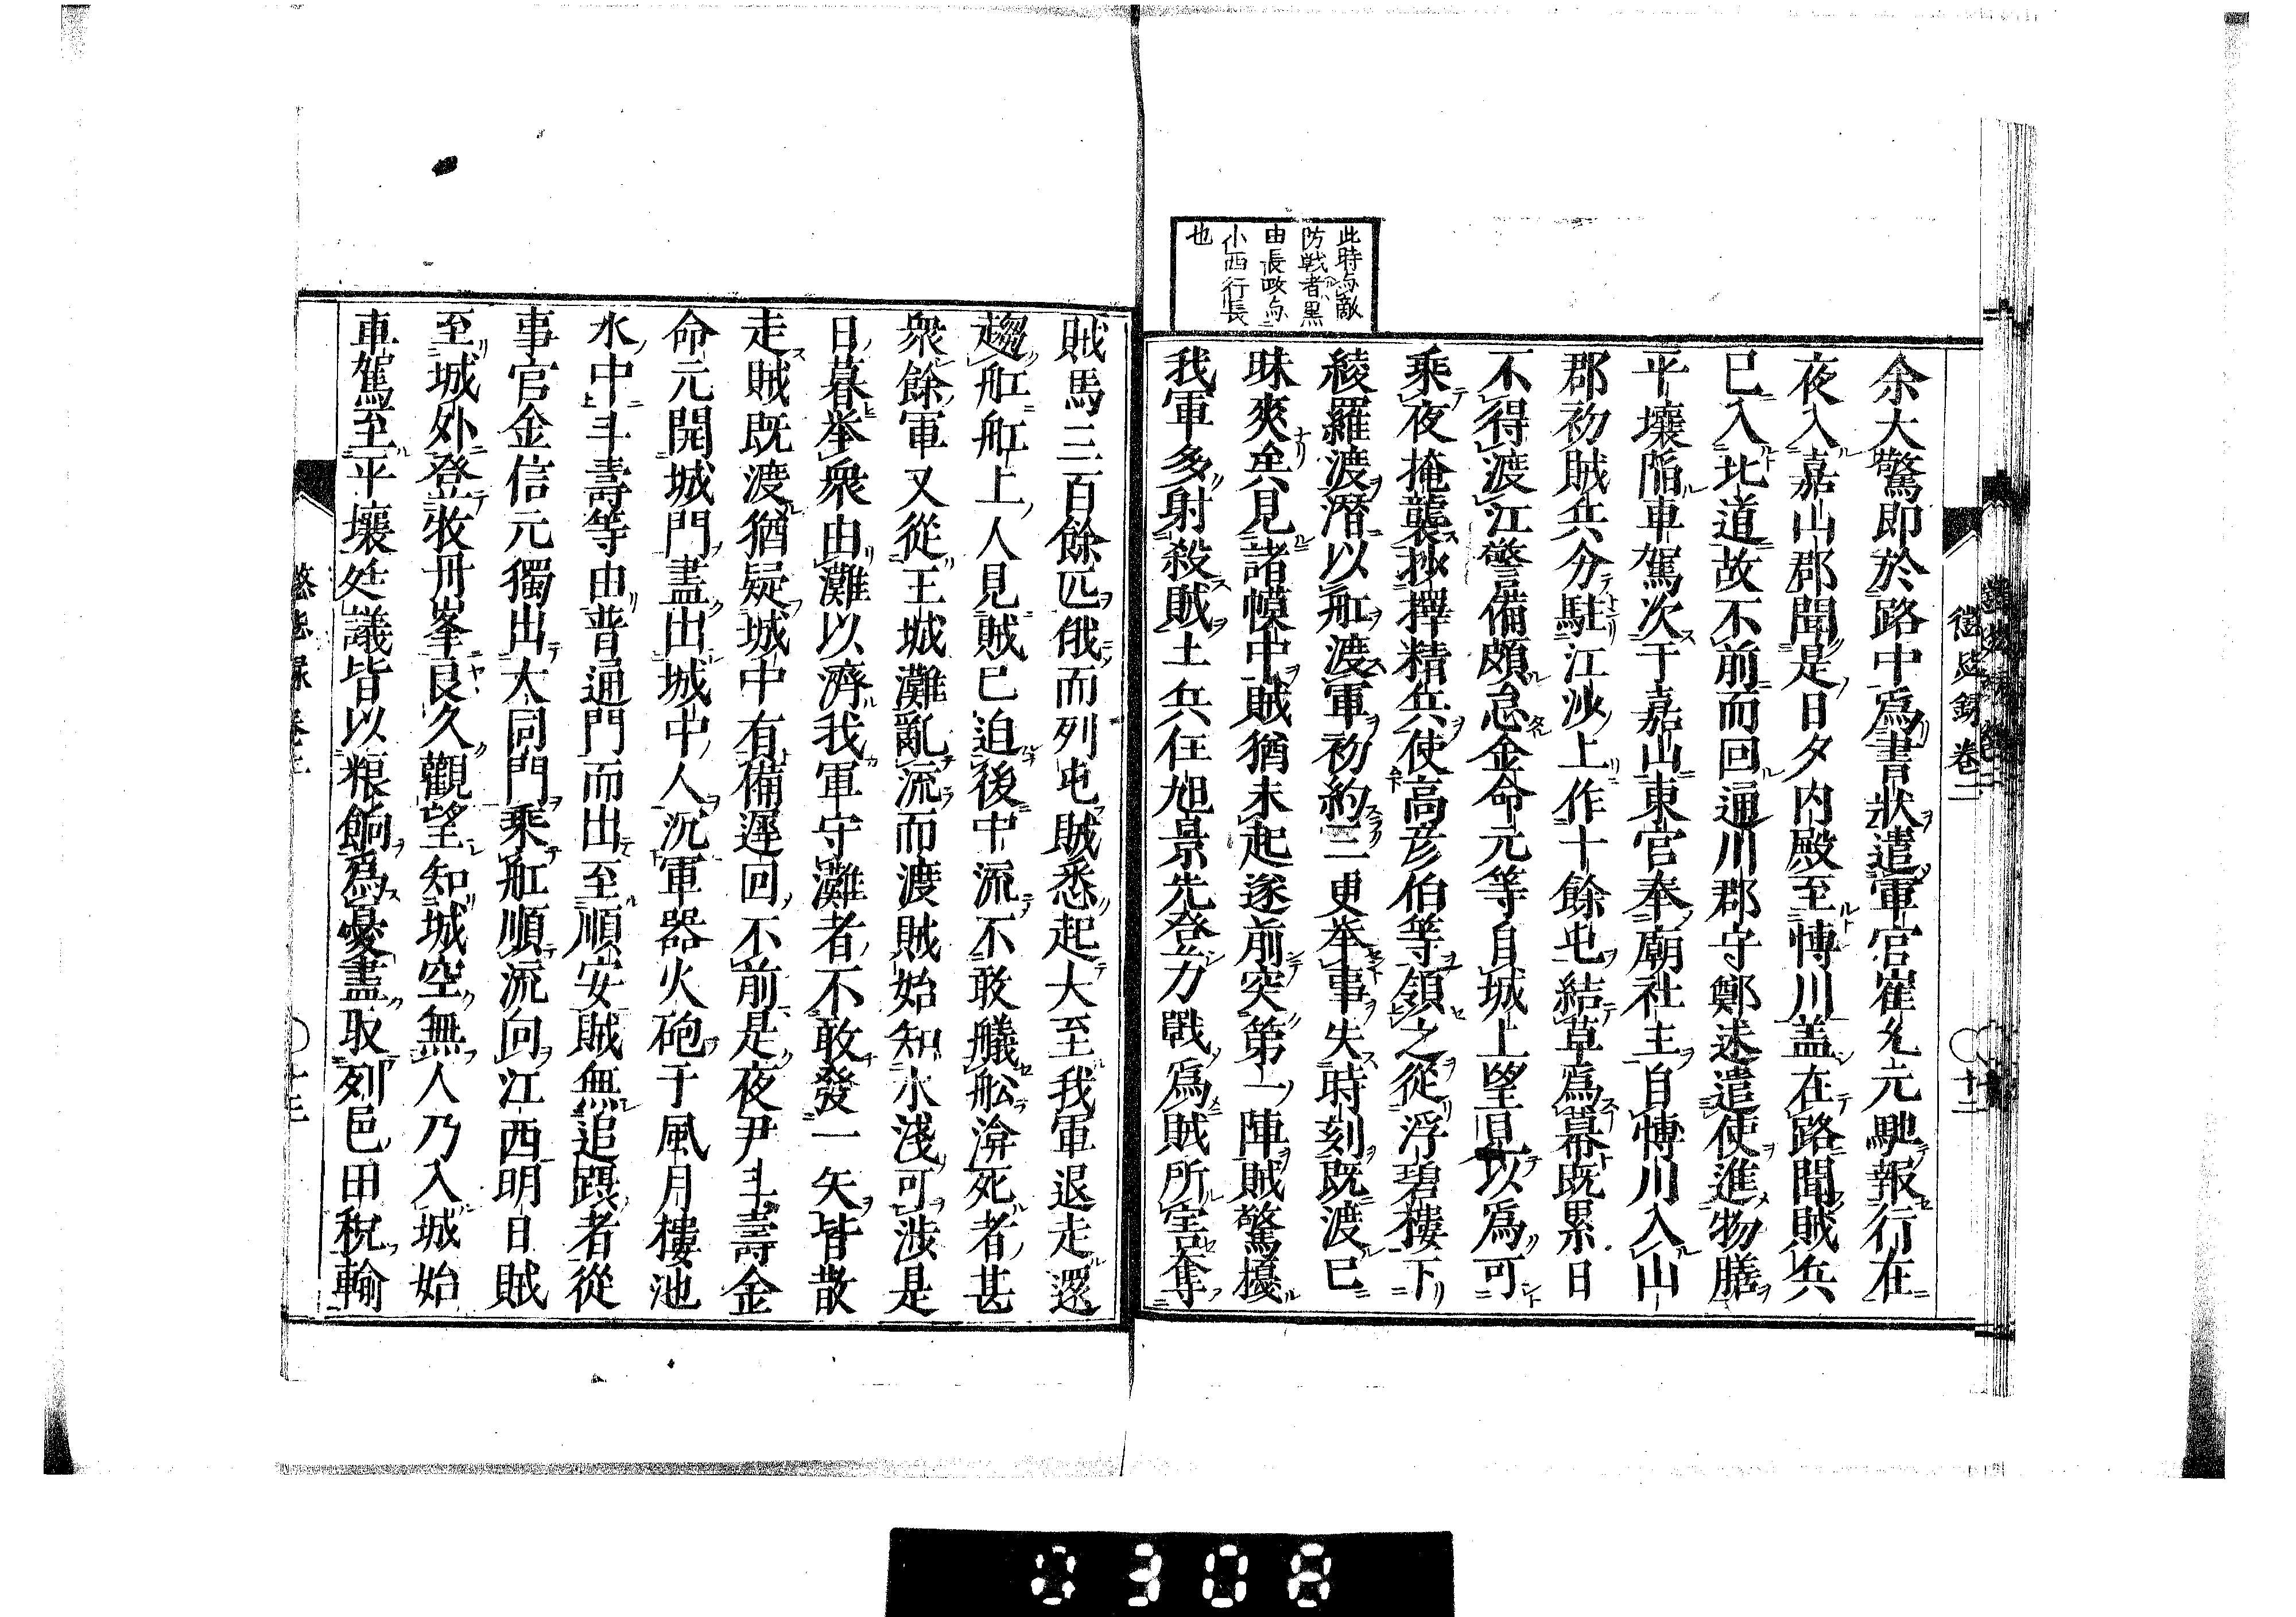 此時与敵
防戦者ハ黒
田長政与
小西行長
也
余大驚即於路中爲書狀遣軍官崔允元馳報行在
夜入嘉山郡聞是日夕内殿至博川盖在路聞賊兵
已入北道故不前而回通川郡守鄭述遣使進物膳
平壤陷車駕次于嘉山東宮奉廟社主自博川入山
郡初賊兵分駐江沙上作十餘屯結草爲幕既累日
不得渡江警備頗怠金命元等自城上望見以爲可
乘夜掩襲抄擇精兵使高彦伯等領之從浮碧樓下
綾羅渡潜以舡渡軍初約三更举事失時刻既渡已
昧爽矣見諸幙中賊猶未起遂前突第一陣賊驚擾
我軍多射殺賊土兵任旭景先登力戰爲賊所害奪
徴毖録巻二
十二
賊馬三百餘匹俄而列屯賊悉起大至我軍退走還
趨舡舡上人見賊已迫後中流不敢艤舩渰死者甚
衆餘軍又從王城灘亂流而渡賊始知水淺可涉是
日暮举衆由灘以濟我軍守灘者不敢發一矢皆散
走賊既渡猶疑城中有備遲回不前是夜尹斗壽金
命元開城門盡出城中人沉軍器火砲于風月樓池
水中斗壽等由普通門而出至順安賊無追躡者從
事官金信元獨出大同門乘舡順流向江西明日賊
至城外登牧丹峯良久觀望知城空無人乃入城始
車駕至平壤廷議皆以粮餉爲憂盡取列邑田稅輸
0308